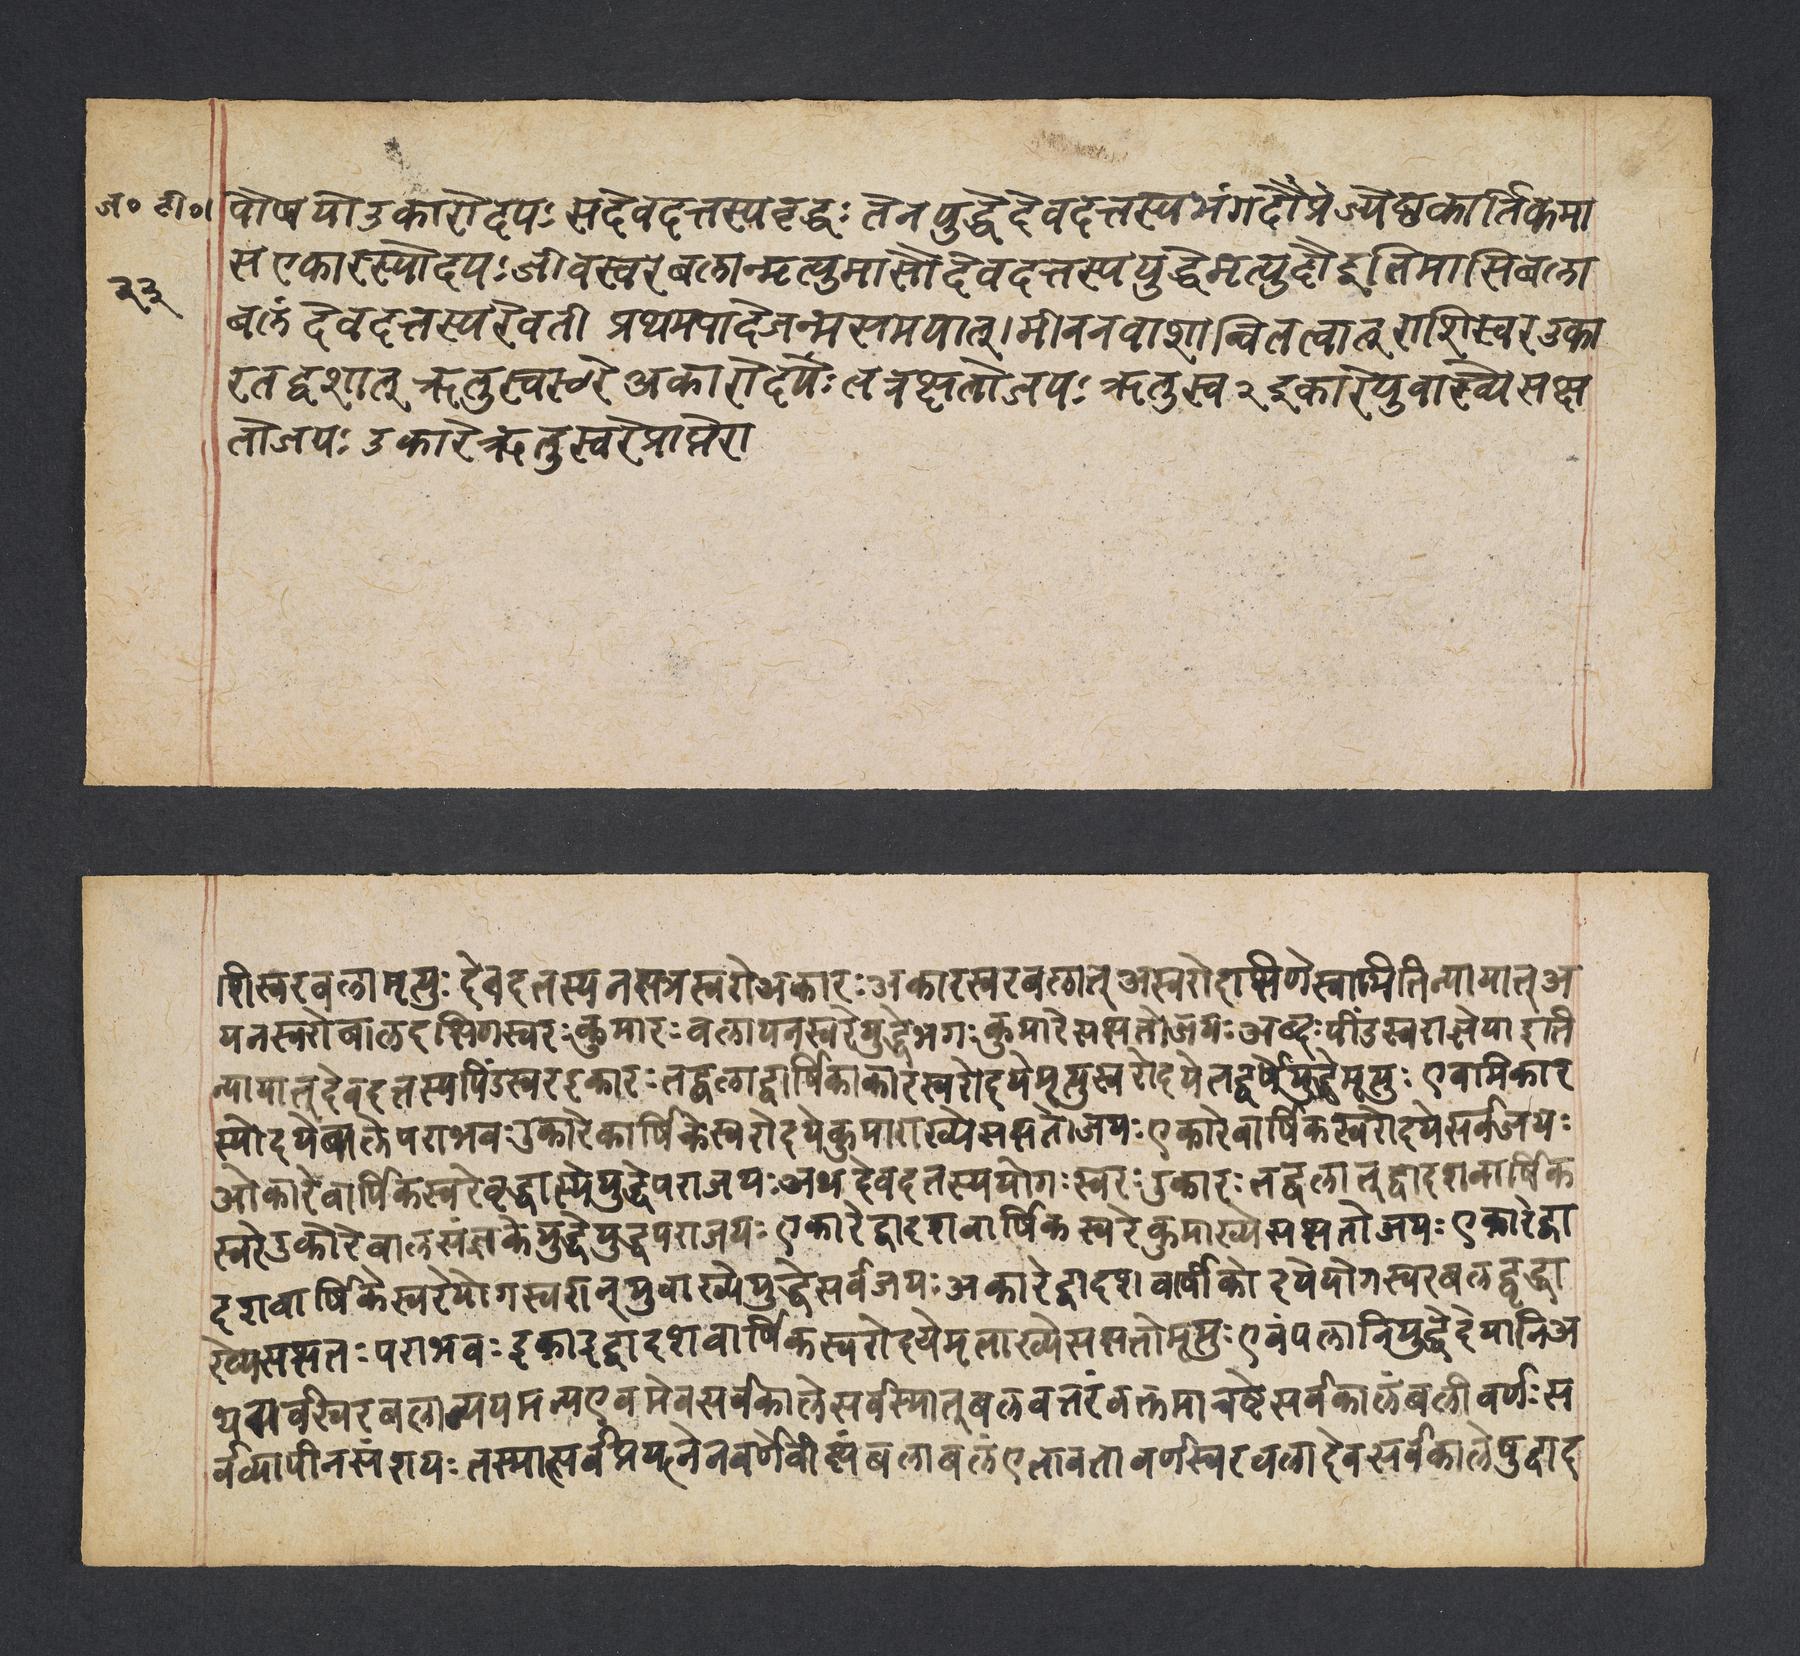 ज० टी०।
२३
पौषयोउकारोदयः सदेवदत्तस्यवृद्धः तेन युद्धे देवदत्तस्यभंगदौ प्रे ज्येष्ठकार्तिकमा
स एकारस्योदयः जीवस्वरबलान्मृत्युमासौ देवदत्तस्ययुद्धेमृत्युदौइतिमासिबला
बलं देवदत्तस्यरेवती प्रथमपादेजन्मसमयात्।मीननवाशान्वितत्वात् राशिस्वरउका
रतद्वशात् ऋतुस्वस्वरे अकारोदयेः तत्रक्षतोजयः ऋतुस्व२इकारेयुवाख्येसक्ष
तोजयः उकारेऋतुस्वरेप्राप्तेरा
शिस्वरबलामृत्युः देवदत्तस्यनक्षत्रस्वरोअकारः अकारस्वरबलात् अस्वरोदक्षिणेस्वामितिन्यायात् अ
यनस्वरोबालदक्षिणस्वरः कुमारः बलायनस्वरेयुद्धेभंगः कुमारेसक्षतोजयः अब्दः पींडस्वराज्ञेयाइति
न्यायात् देवदत्तस्यपिंडस्वरइकारः तद्बलाद्वार्षिकाकारस्वरोदयेमृत्युस्वरोदयेतद्वर्षेयुद्धेमृत्युः एवमिकार
स्योदयेबालेपराभवः उकारेवार्षिकेस्वरोदयेकुमाराख्येसक्षतोजयः एकारेवार्षिकस्वरोदयेसर्वजयः
ओकारेवार्षिकस्वरेवृद्धाख्येयुद्धेपराजयः अथ देवदत्तस्ययोगः स्वरः उकारः तद्बलात् द्वादशवार्षिक
स्वरेउकारेबालसंज्ञकेयुद्धेयुद्धपराजयः एकारेद्वादशवार्षिकस्वरेकुमाख्येसक्षतोजयः एकारेद्वा
दशवार्षिकेस्वरेयोगस्वरात् युवाख्येयुद्धेसर्वजयः अकारेद्वादशवार्षीकोदयेयोगस्वरबलद्वृद्धा
ख्येसक्षतः पराभवः इकारद्वादशवार्षिकस्वरोदयेमृताख्येसक्षतोमृत्युः एवंफलानियुद्धेदेयानिअ
थसर्वस्वरबलान्यपमन्यएवमेवसर्वकालेसर्वस्मात् बलवत्तरंवक्तमाचष्टेसर्वकालंबलीवर्णः स
र्वव्यापीनसंशयः तस्मात्सर्वप्रयत्नेनवर्णेवीक्ष्यंबलाबलंएतावतावर्णस्वरबलादेवसर्वकालेषुदाद